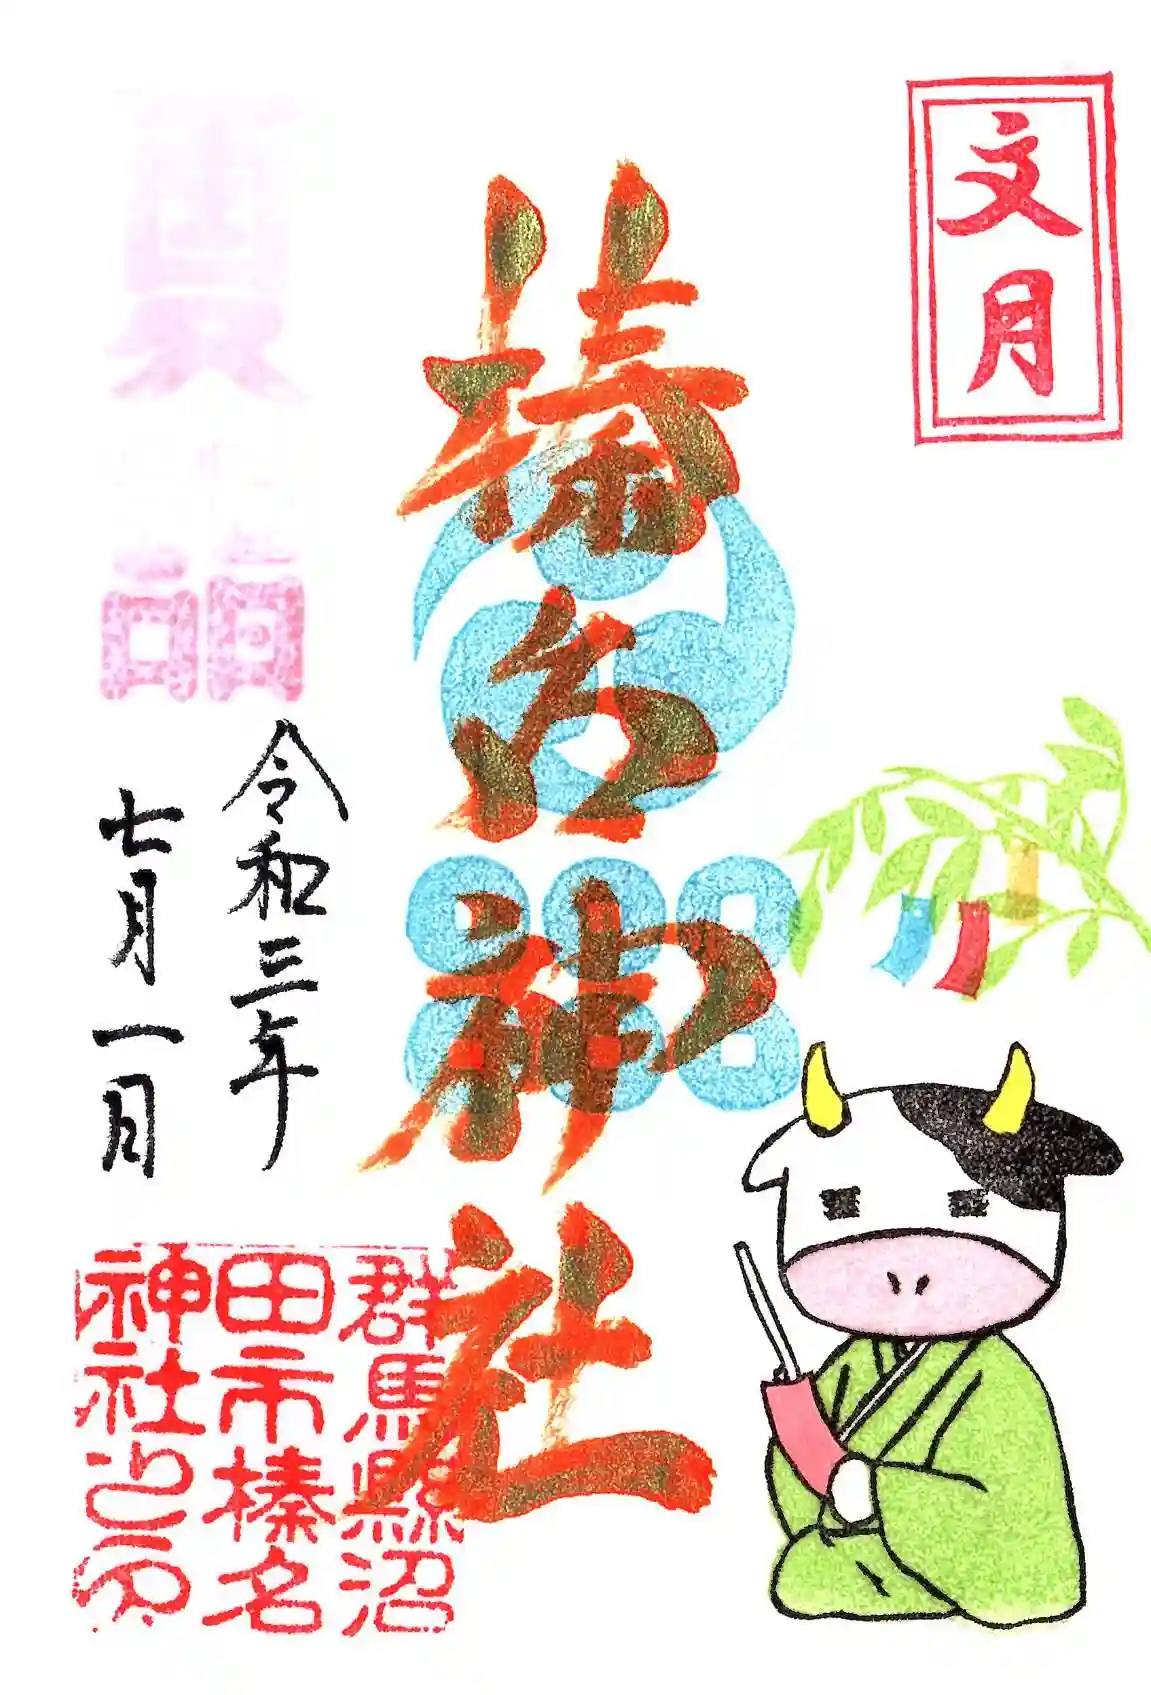 文月
榛名神社
夏詣
令和三年
七月一日
群馬縣沼
田市榛名
神社之印